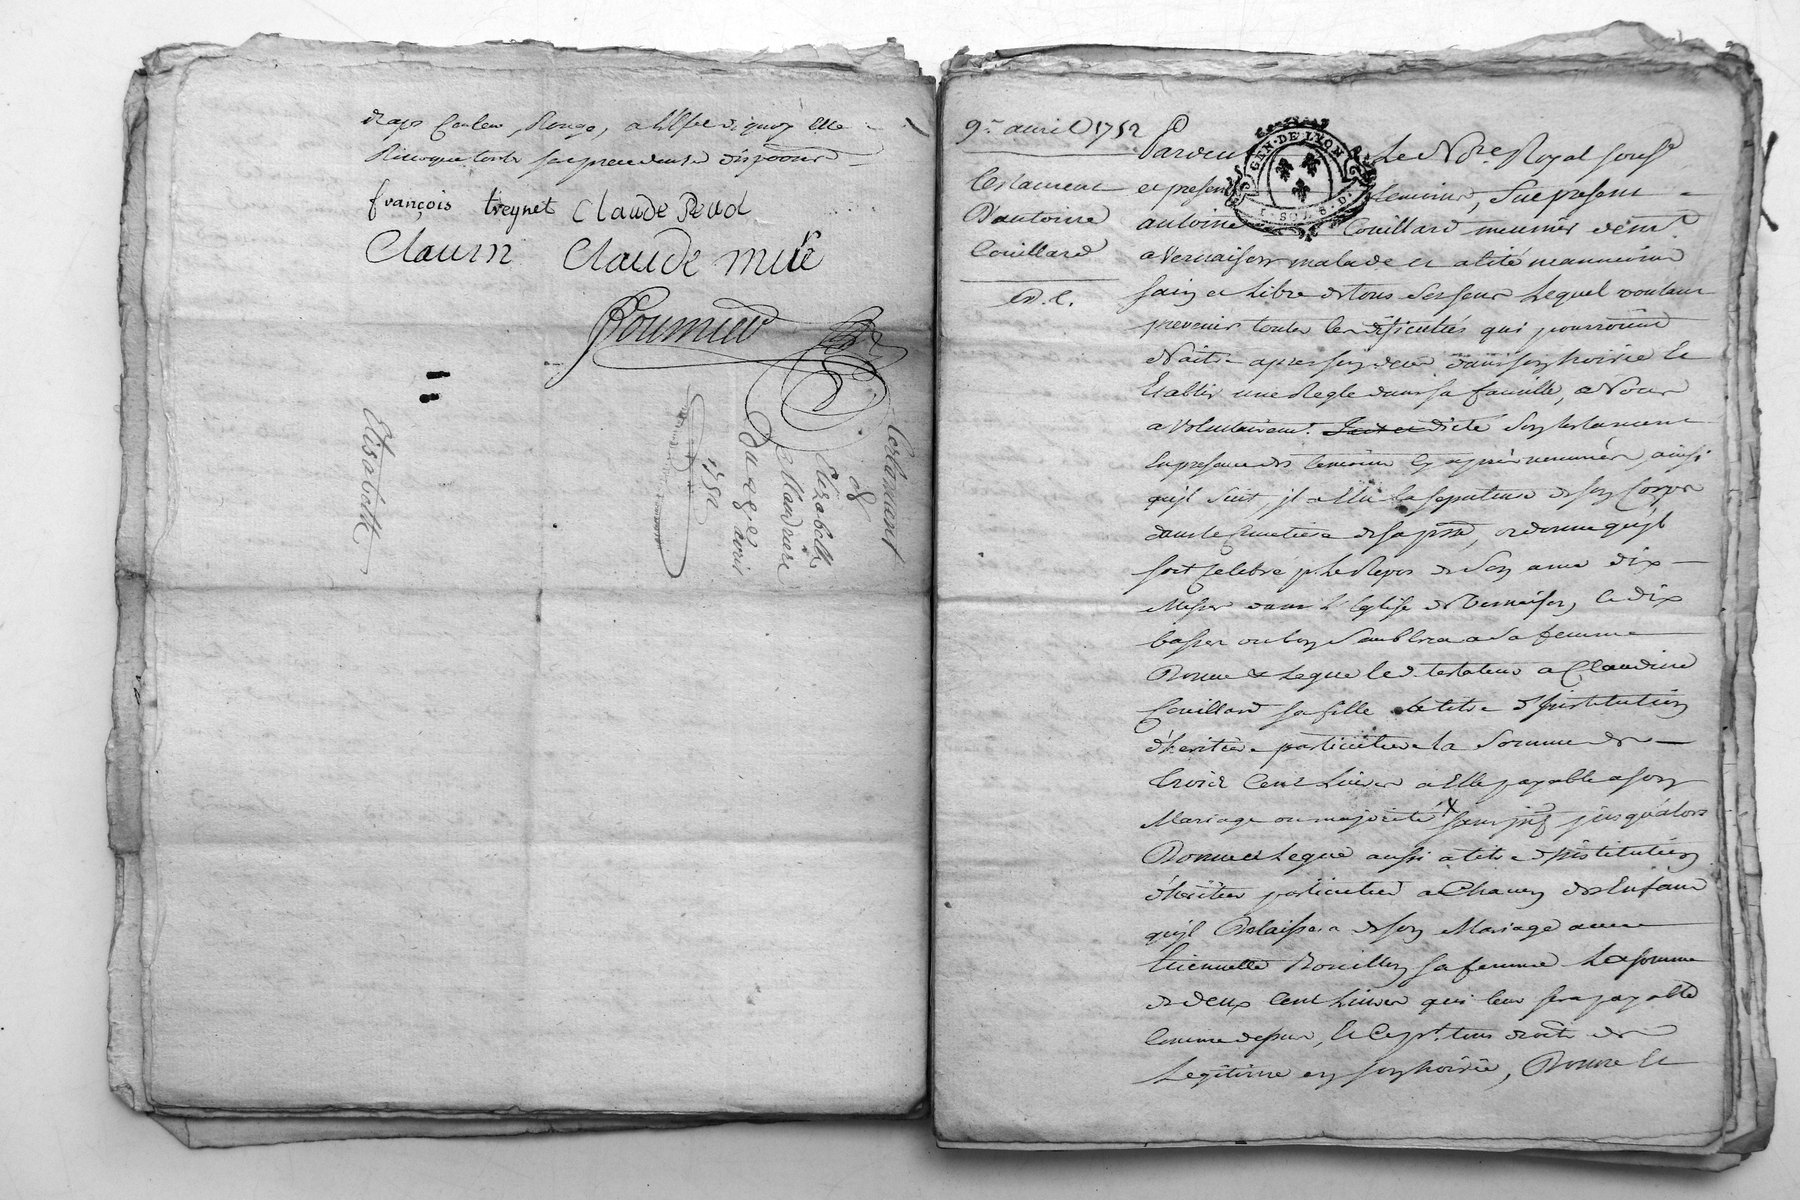 draps Couleur Rouge, a l'effet de quoy elle
Revoque toutes ses precedentes dispõons
françois treynet Claude Peud
Claurn Claude mure
Poumier
Testament
de
Elizabeth
Mandrare
Du 28 avril
1752
Elisabeth
9e avril 1752
Testament
D'antoine
Couillard
Pardev
Le Nore Royal soussé
et presen
temoins, fut present
antoine
Couillard meunier demt
a Vernaison malade et alité neanmoins
sain et Libre de tous ses sens Lequel voulant
prevenir toutes les dificultés qui pourroient
Naitre apres son deces dans son hoirie Et
Etablir une Regle dans sa famille, a Nous
a volontairemt dicté son testament
En presence des temoins cy aprés nommés, ainsi
qu'il suit, il a Elu la sepulture de son Corps
dans le Cimetiere de sa psse, ordonne qu'il
soit Celebré pr le Repos de Son ame dix
Messes dans L'Eglise de Vernaison, et dix
basses ou bon Semblera a Sa femme
Donne & Legue led. testateur a Claudine
Couillard sa fille a titre d'Institution
d'heritiere particuliere la Somme de
trois Cent Livres a Elle payable a son
Mariage ou majorité sans int. jusqu'alors
Donne et Legue aussi a titre d'institution
d'heritier particulier a Chacun des Enfans
qu'il Delaissera de son Mariage avec
Etiennette Bouillon sa femme La somme
de deux Cent Livres qui leur sera payable
Comme dessus, Et Ce pr. tous droits de
Legitime en son hoirie, Donne Et
GEN. DE LYON
I. SOL 8. D.